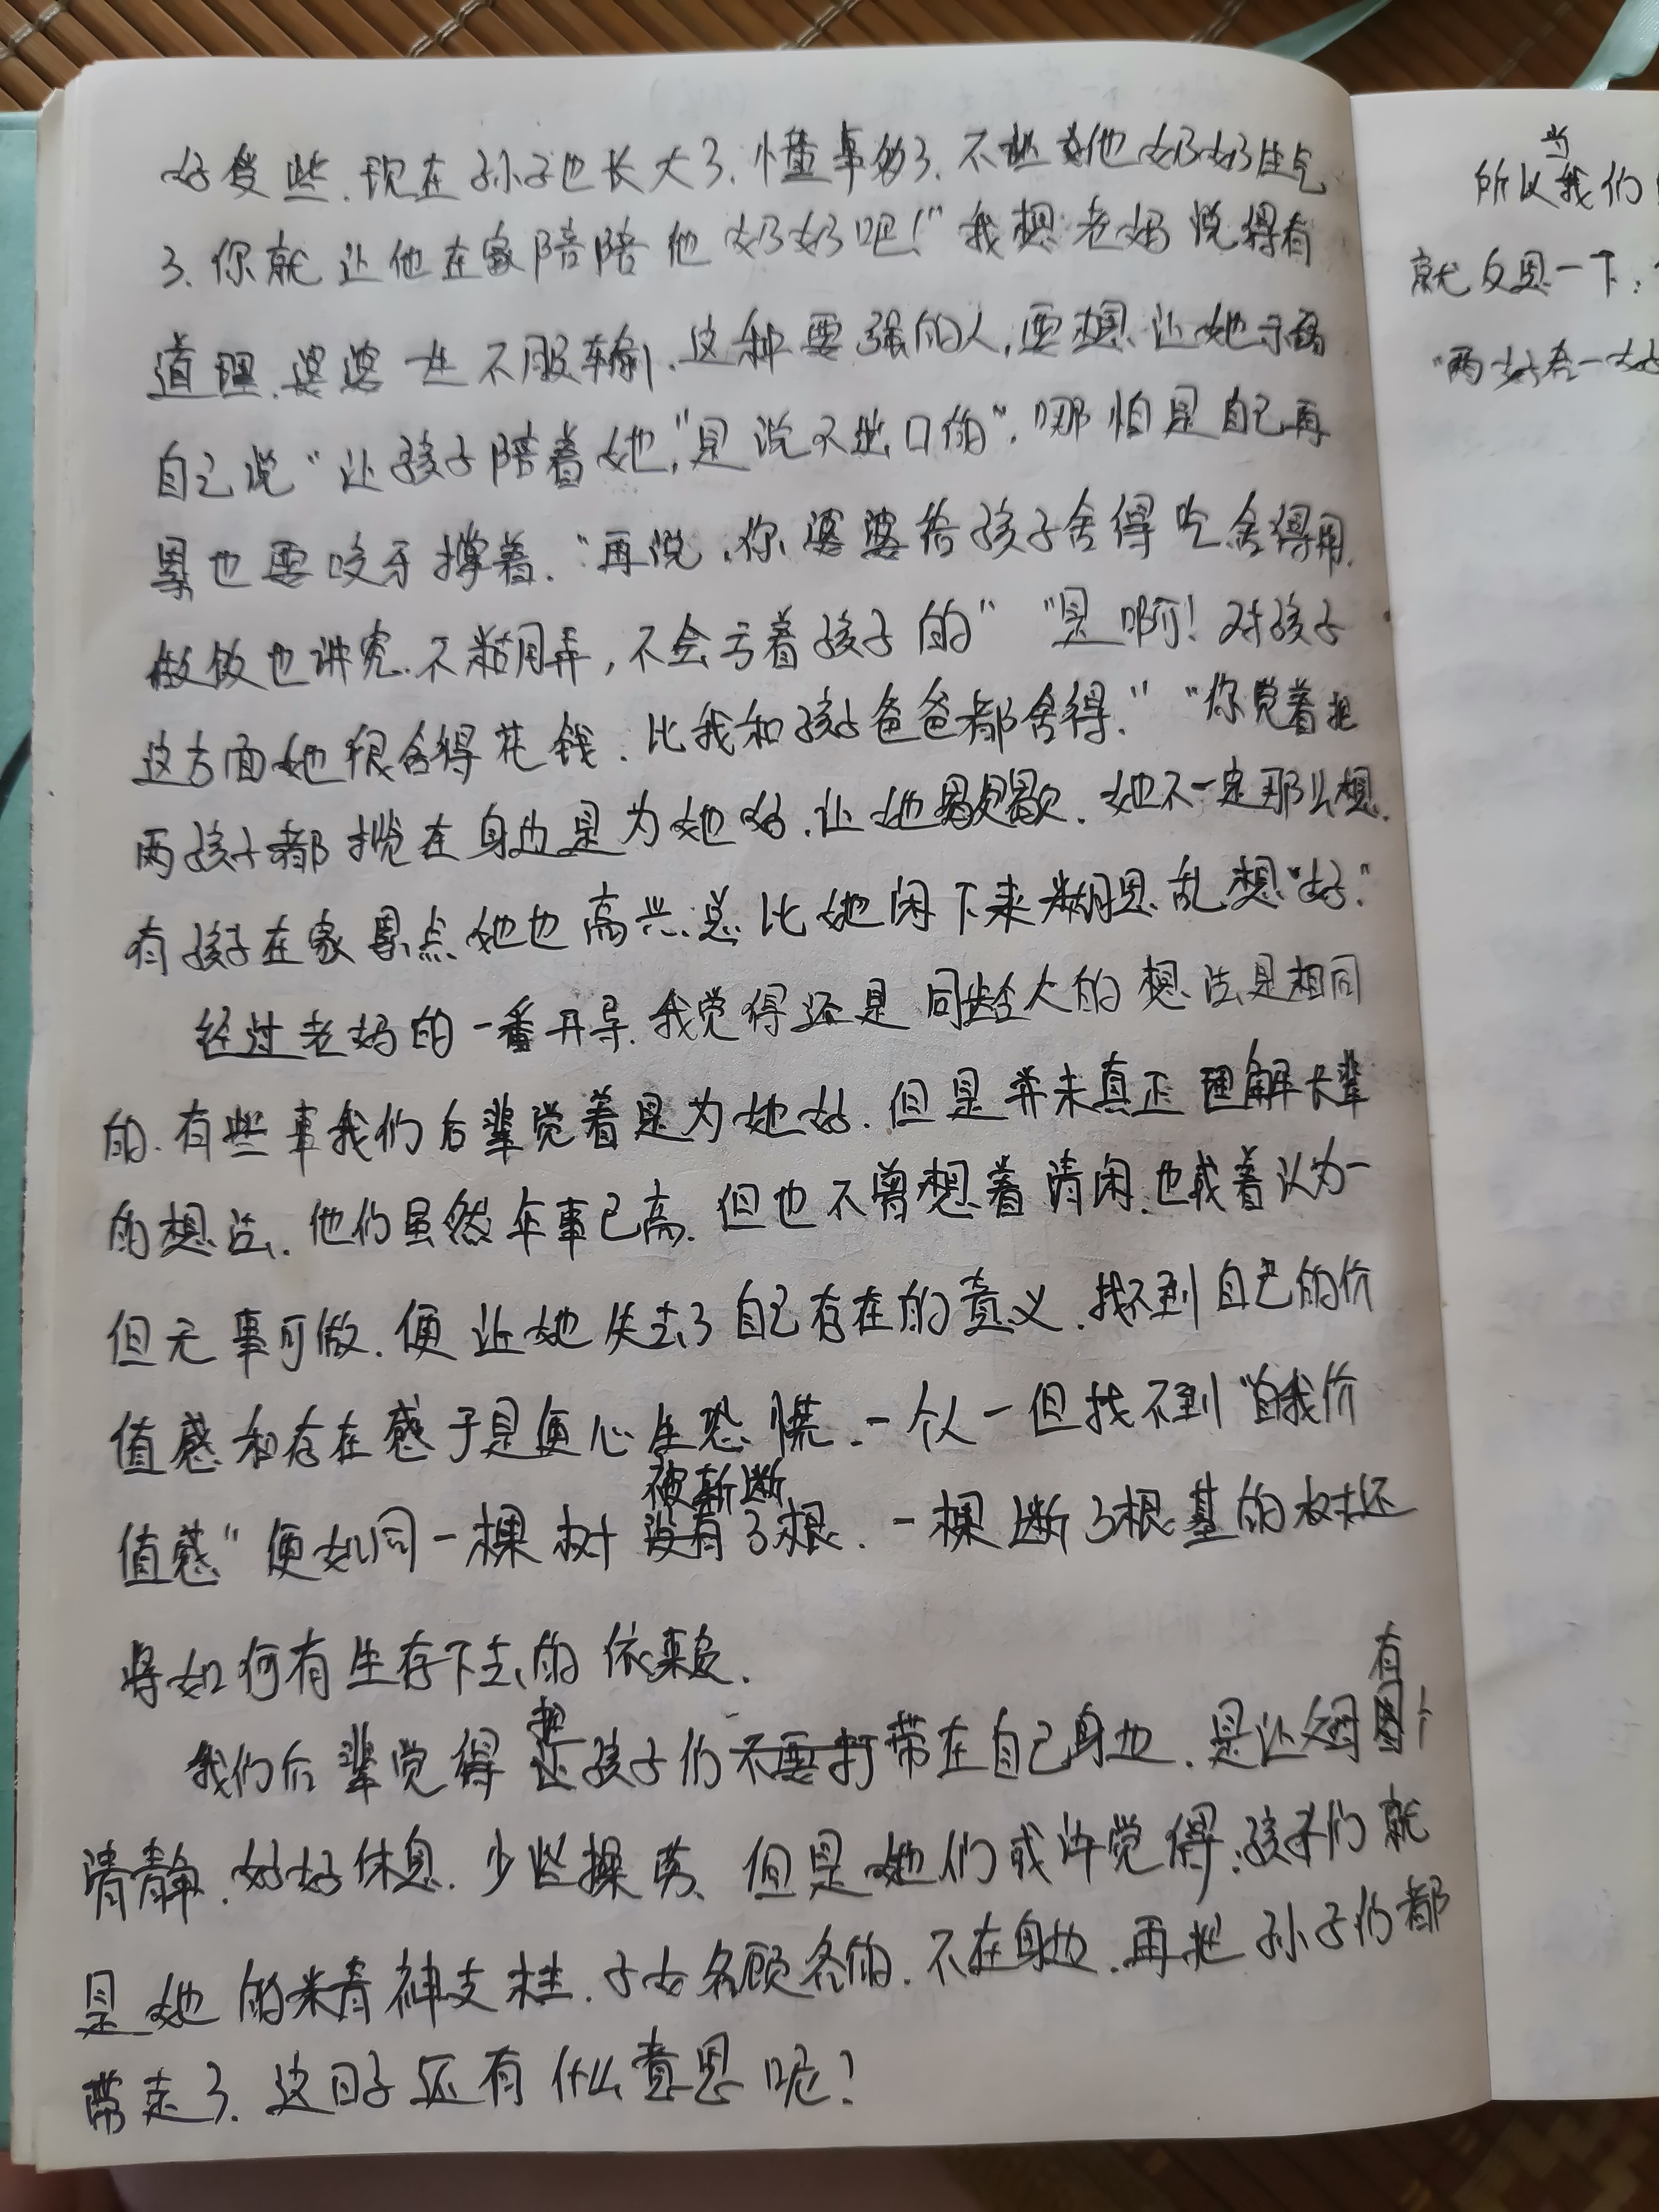 好受些.现在孙子也长大了.懂事多了.不让他奶奶生气
了.你就让他在家陪陪他奶奶吧!"我想老妈说得有
道理.婆婆一生不服输.这种要强的人,要想让她示弱
自己说"让孩子陪着她,"是说不出口的".哪怕是自己再
累也要咬牙撑着."再说,你婆婆给孩子舍得吃舍得用.
做饭也讲究.不糊弄,不会亏着孩子的" "是啊!对孩子
这方面她很舍得花钱.比我和孩子爸爸都舍得." "你觉着把
两孩子都揽在身边是为她好.让她歇歇.她不一定那么想.
有孩子在家累点她也高兴.总比她闲下来糊思乱想"好."
经过老妈的一番开导.我觉得还是同龄人的想法是相同
的.有些事我们后辈觉着是为她好.但是并未真正理解长辈
的想法.他们虽然年事已高.但也不曾想着清闲.也或着认为一
但无事可做.便让她失去了自己存在的意义.找不到自己的价
值感和存在感于是便心生恐慌.一个人一但找不到"自我价
值感"便如同一棵树被斩断了根.一棵断了根基的树还
将如何有生存下去的依赖.
我们后辈觉得把孩子们带在自己身边.是让父母有个
清静.好好休息.少些操劳.但是她们或许觉得:孩子们就
是她的精神支柱.子女各顾各的.不在身边.再把孙子们都
带走了.这日子还有什么意思呢?
所以当我们
就反思一下:
"两好合一好